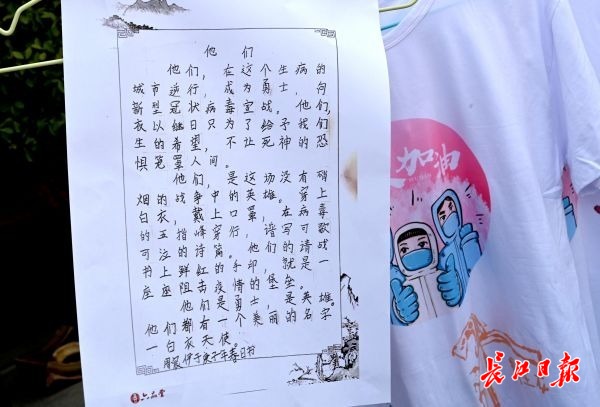 他们
他们，在这个生病的
城市逆行，成为勇士，向
新型冠状病毒宣战，他们，
衣以继日只为了给予我们
生的希望，不让死神的恐
惧笼罩人间。
他们，是这场没有硝
烟的战争中的英雄。穿上
白衣，戴上口罩，在病毒
的五指峰穿行，谱写可歌
可泣的诗篇。他们的请战
书上鲜红的手印，就是一
座座阻击疫情的堡垒。
他们是勇士，是英雄。
他们都有一个美丽的名字
—白衣天使。
于庚子年春日书
六品堂
加油
长江日报